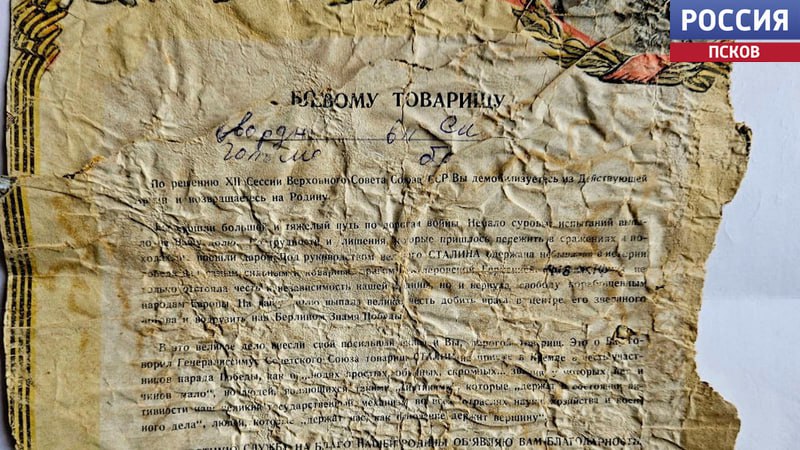 РОССИЯ
ПСКОВ
БОЕВОМУ ТОВАРИЩУ
По решению XII Сессии Верховного Совета Союза ССР Вы демобилизуетесь из Действующей
Армии и возвращаетесь на Родину.
Вы прошли большой и тяжелый путь по дорогам войны. Немало суровых испытаний выпа-
ло на Вашу долю. трудности и лишения, которые пришлось пережить в сражениях и по-
ходах прошли даром. Под руководством СТАЛИНА одержана в истории
победа над сильным и коварным врагом Германией. не
только отстояла честь и независимость нашей Родины, но и вернула свободу порабощенным
народам Европы. На долю выпала великая честь добить врага в центре его звериного
логова и водрузить над Берлином Знамя Победы.
В это великое дело внесли свой посильный и Вы, дорогой товарищ. Это о Вас го-
ворил Генералиссимус Советского Союза товарищ СТАЛИН на приеме в Кремле в честь участ-
ников парада Победы, как о „людях простых, обычных, скромных", у которых нет и
чинов мало", но людей, являющихся такими „винтиками", которые „держат в состоянии ак-
тивности наш великий государственный механизм во всех отраслях науки, хозяйства и воен-
ного дела", людей, которые „держат нас, как основание держит вершину".
СЛУЖБУ НА БЛАГО НАШЕЙ РОДИНЫ ОБ'ЯВЛЯЮ ВАМ БЛАГОДАРНОСТЬ